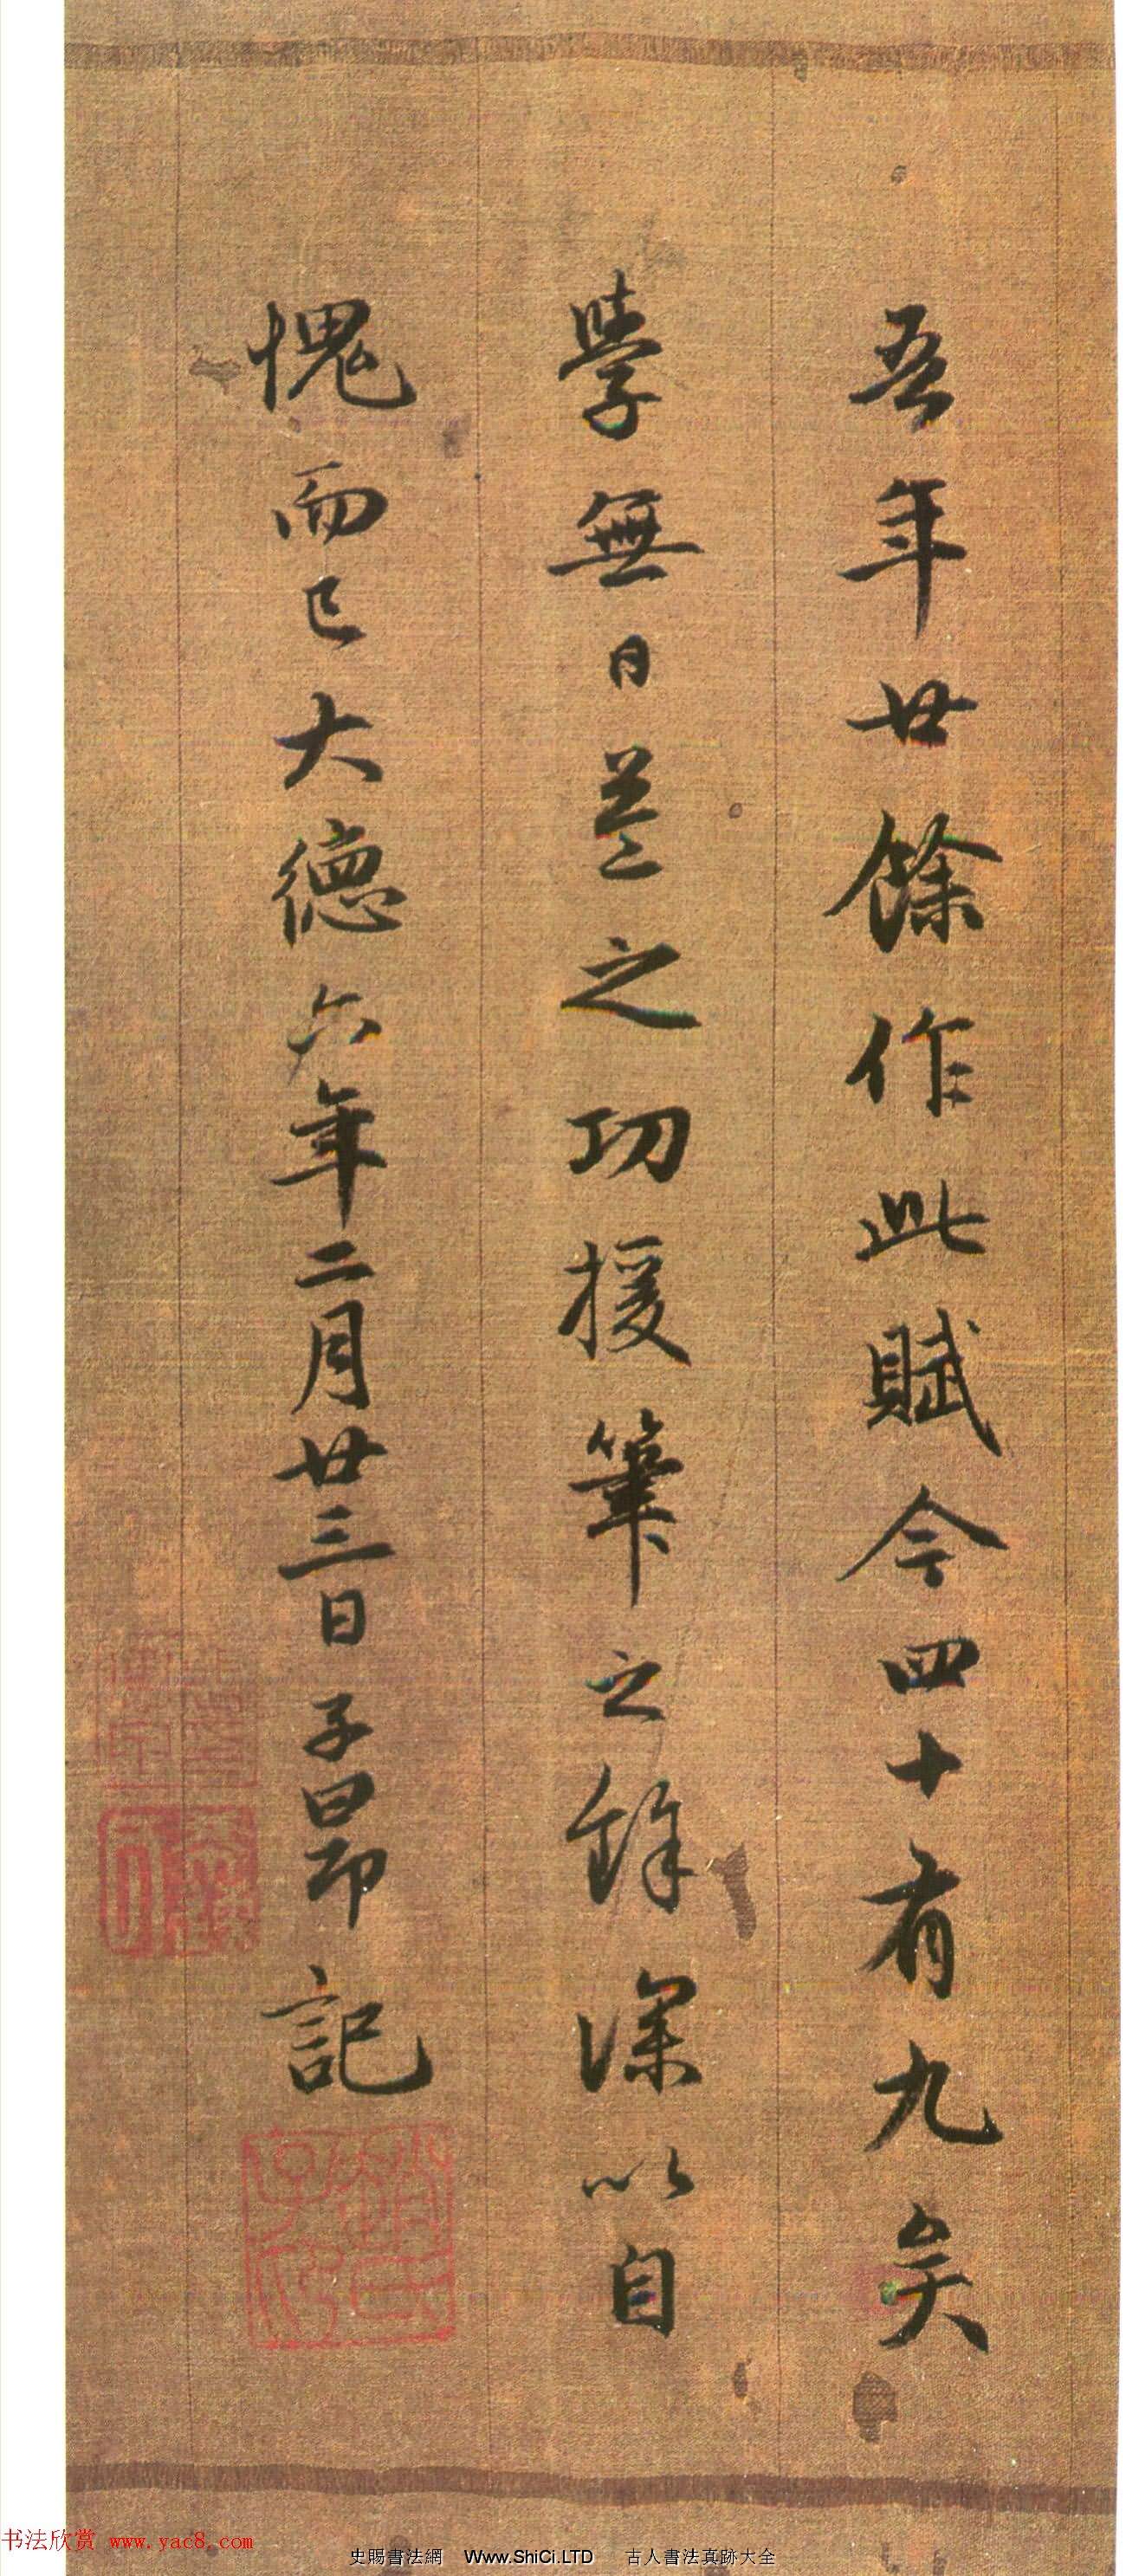 吾年廿餘作此賦今四十有九矣
學無日益之功援筆之餘深以自
愧而已大德六年二月廿三日子昂記
趙氏子昂
书法欣赏 www.yac8.com
史賜書法網 Www.ShiCi.LTD 古人書法真跡大全